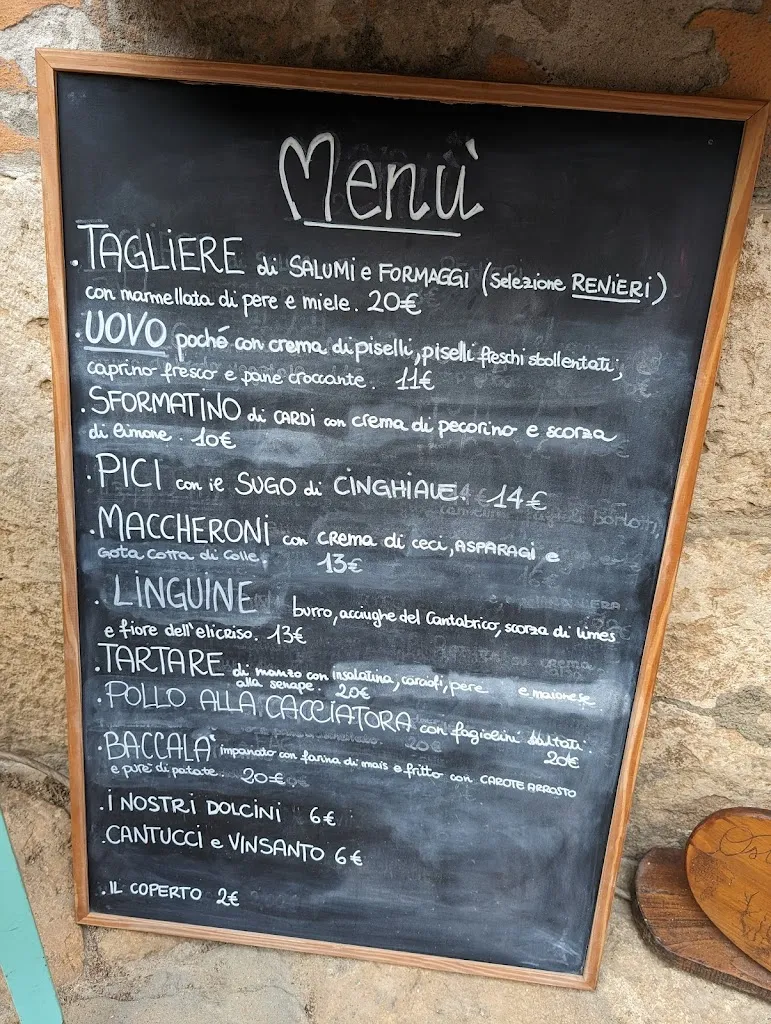 Menù
. TAGLIERE di SALUMI e FORMAGGI (Selezione RENIERI)
con marmellata di pere e miele. 20€
. UOVO poché con crema di piselli, piselli freschi sbollentati,
caprino fresco e pane croccante. 11€
. SFORMATINO di CARDI con crema di pecorino e scorza
di limone. 10€
. PICI con il SUGO di CINGHIALE. 14€
. MACCHERONI con CREMA di CECI, ASPARAGI e
Gota cotta di Colle. 13€
. LINGUINE burro, acciughe del Cantabrico, scorza di limes
e fiore dell'elicriso. 13€
. TARTARE di manzo con insalatina, carciofi, pere e maionese
alla senape. 20€
. POLLO ALLA CACCIATORA con fagiolini saltati.
20€
. BACCALA' impanato con farina di mais e fritto con CAROTE ARROSTO
e purè di patate. 20€
. I NOSTRI DOLCINI 6€
. CANTUCCI e VINSANTO 6€
. IL COPERTO 2€